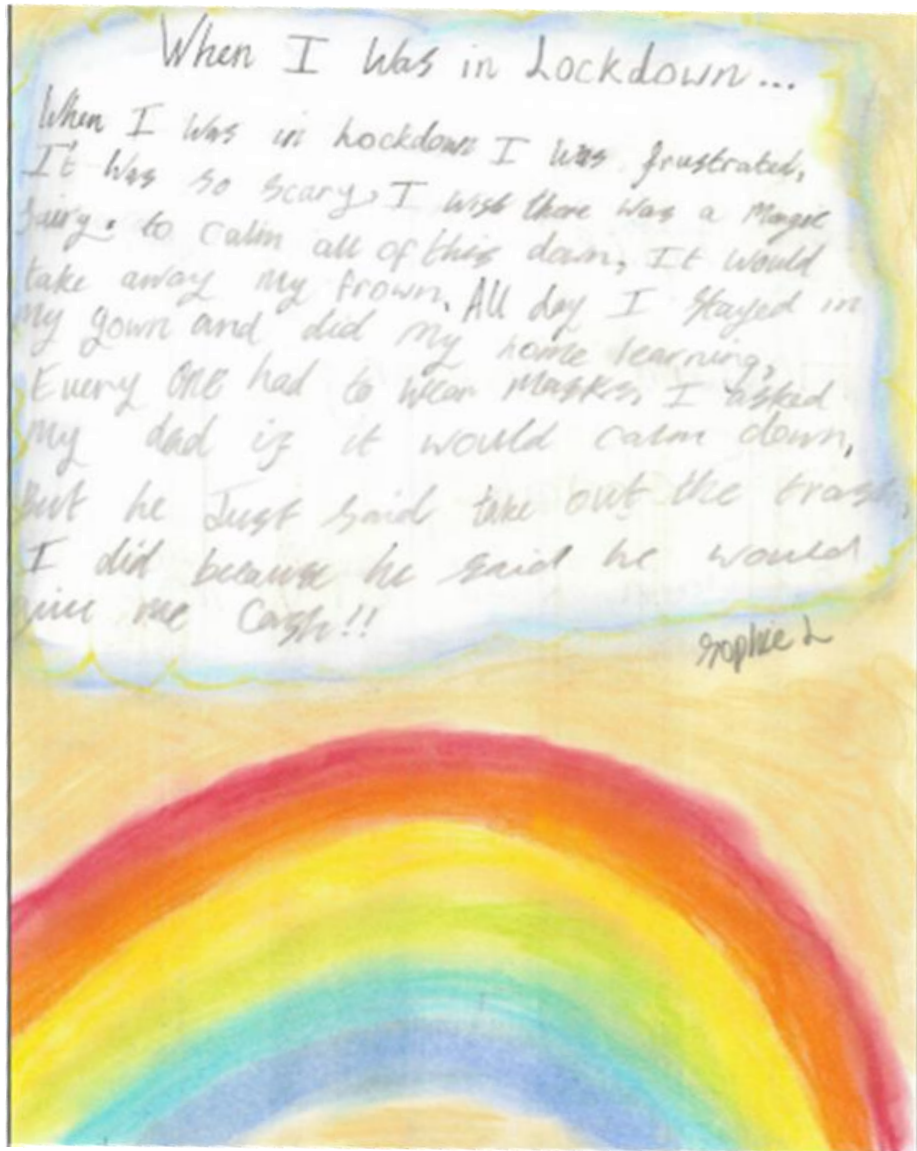 When I Was in Lockdown...
When I Was in Lockdown I was frustrated,
It Was so scary, I wish there was a Magic
fairy. to calm all of this down, It would
take away my frown. All day I stayed in
My gown and did My home learning,
Every one had to wear Masks, I asked
My dad if it would calm down,
But he Just said take out the trash,
I did because he said he would
give me Cash!!
Sophie L